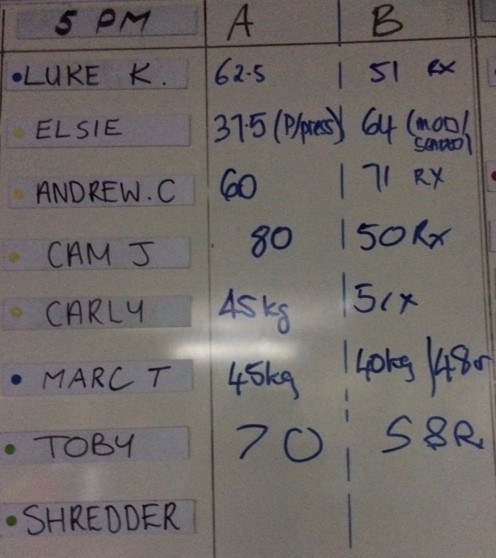 5 PM A B
LUKE K. 62.5 51 RX
ELSIE 37.5 (P/press) 64 (mod/
ANDREW.C 60 71 RX
CAM J 80 50 Rx
CARLY 45kg
MARC T 45kg 40kg/48r
TOBY 70 58R
SHREDDER